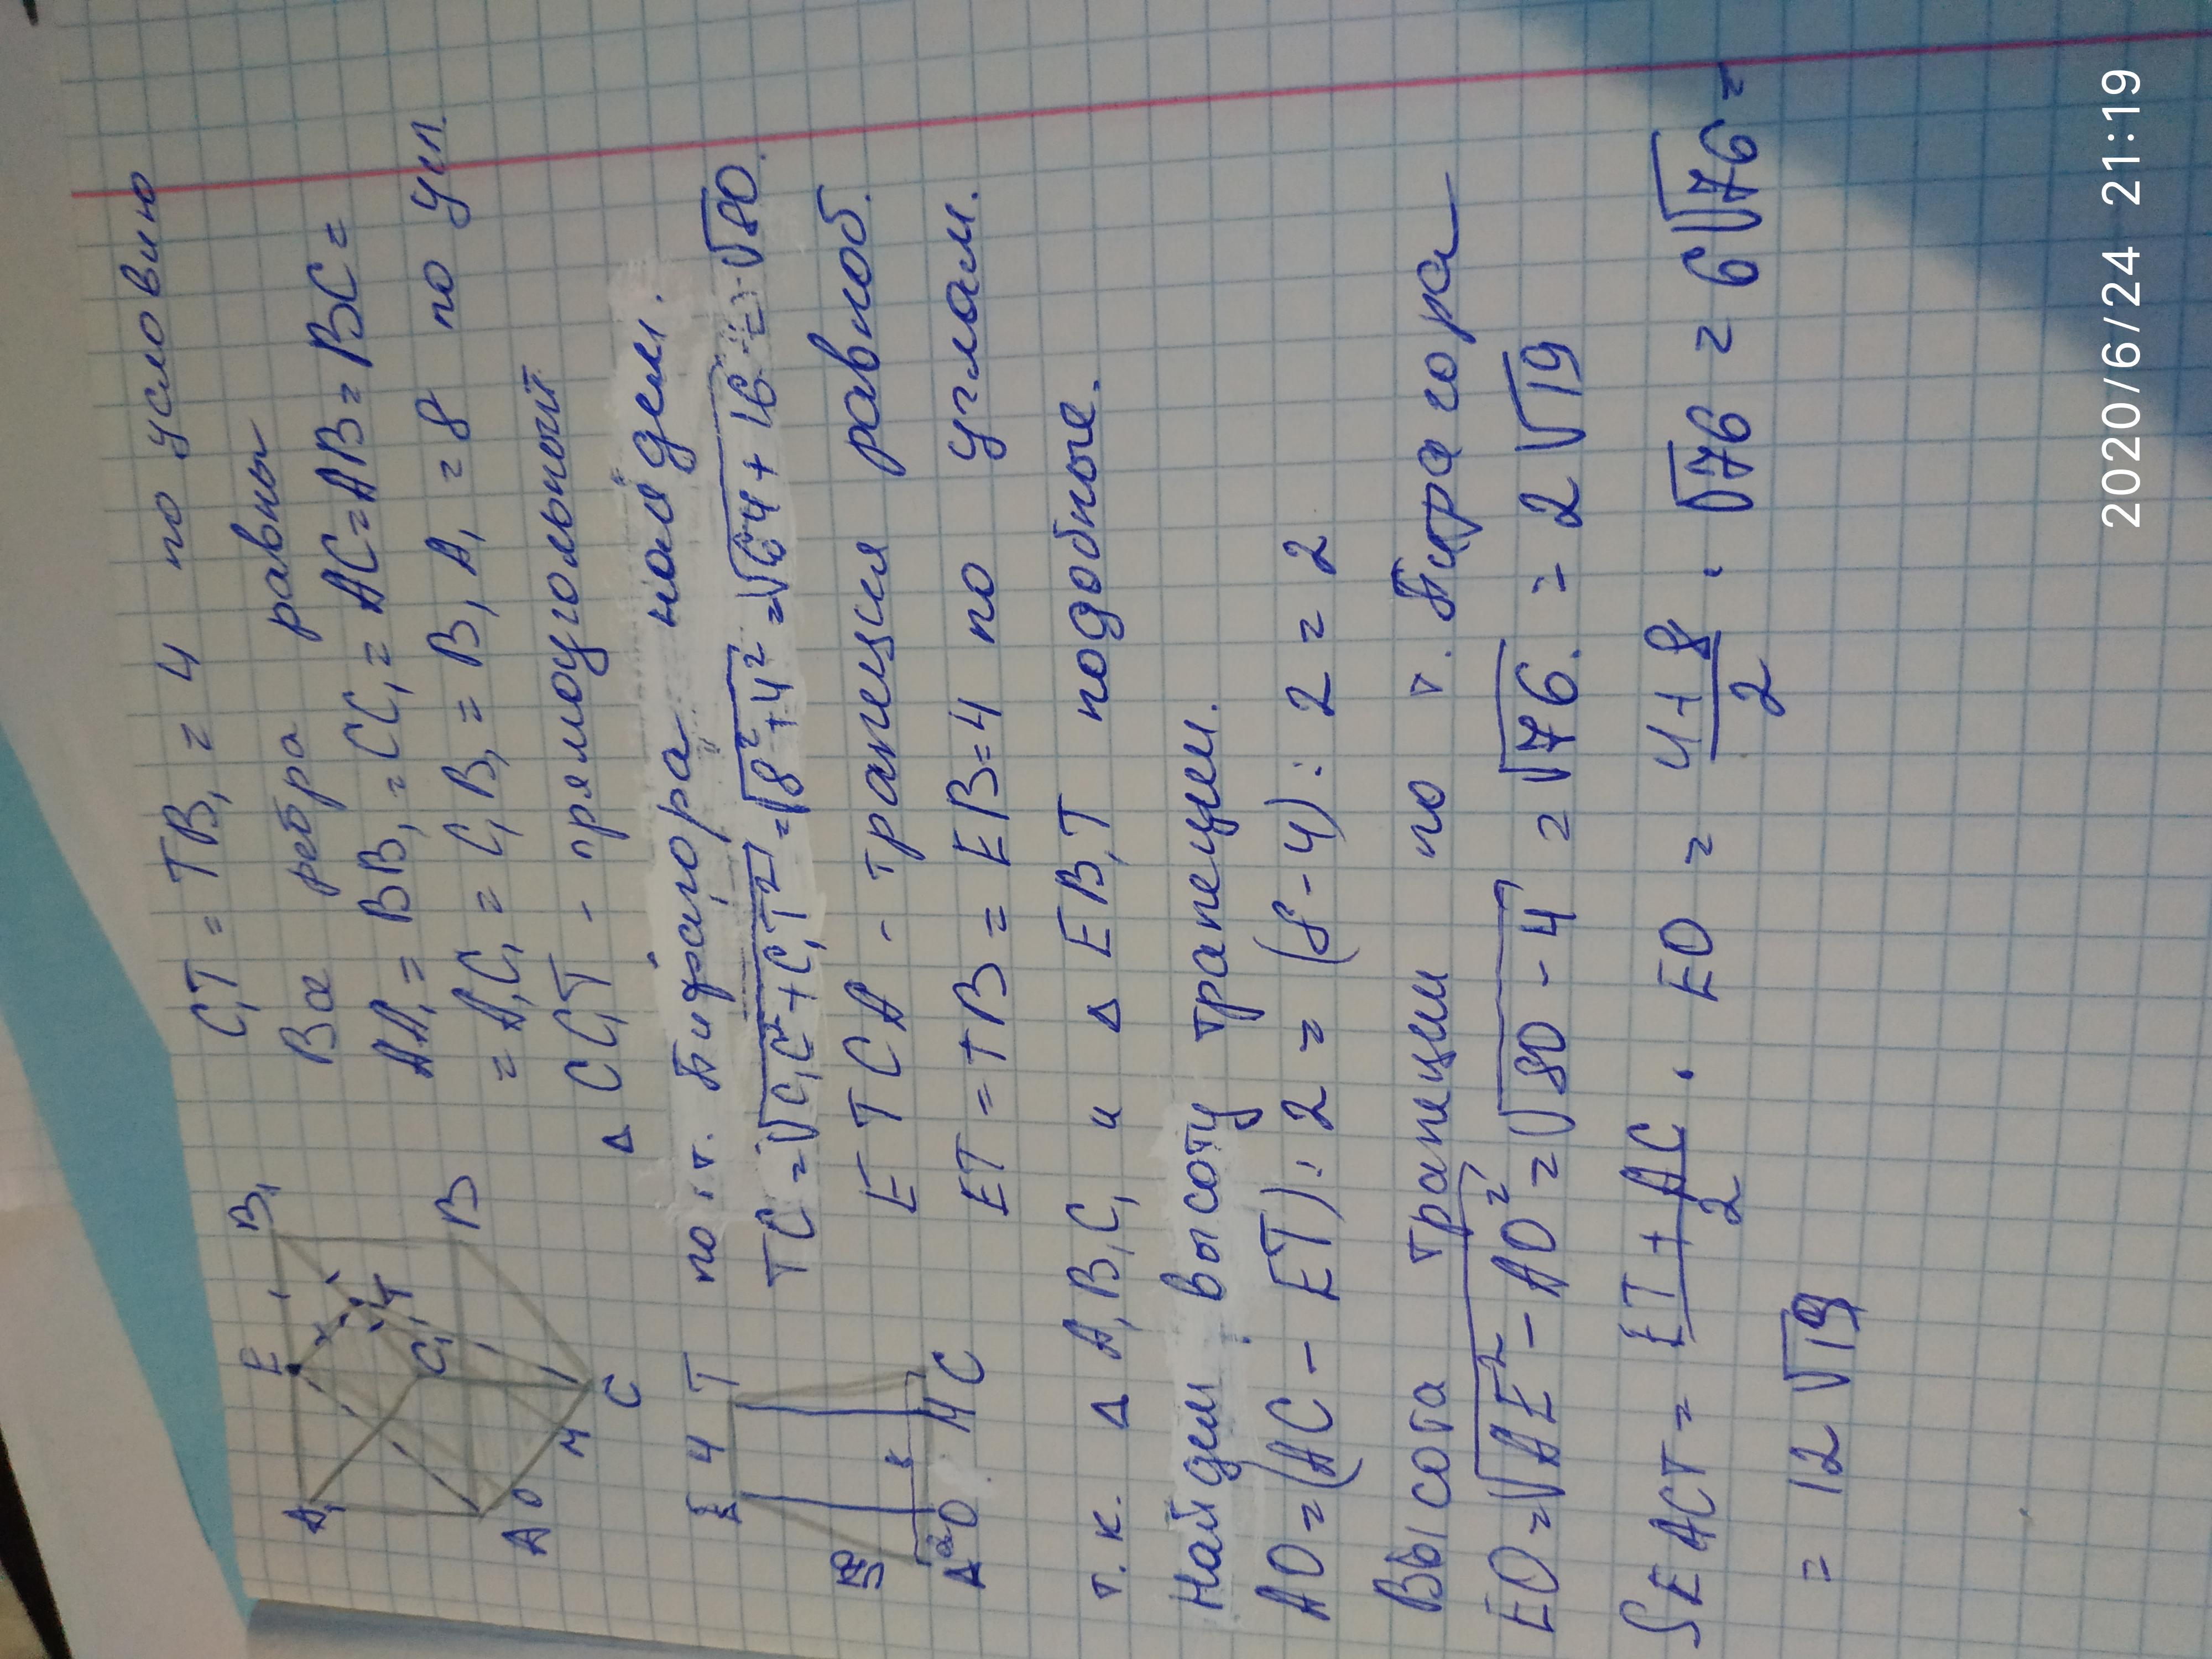 C₁T = TB₁ = 4 по условию
Все ребра равны
AA₁ = BB₁ = CC₁ = AC = AB = BC =
= A₁C₁ = C₁B₁ = B₁A₁ = 8 по усл.
△ CC₁T - прямоугольный
по т. Пифагора найдем.
TC = √C₁C² + C₁T² = √8² + 4² = √64 + 16 = √80.
ETCA - трапеция равноб.
ET = TB = EB = 4 по углам.
т.к. △ A₁B₁C₁ и △ EB₁T подобные.
Найдем высоту трапеции.
AO = (AC - ET) : 2 = (8 - 4) : 2 = 2
Высота трапеции по т. Пифагора
EO = √AE² - AO² = √80 - 4 = √76. = 2√19
SEACT = ET + AC / 2 · EO = 4 + 8 / 2 · √76 = 6√76 =
= 12√19
A₁ E B₁
T
C₁
A O M C B
E 4 T
A O M C
2020/6/24 21:19